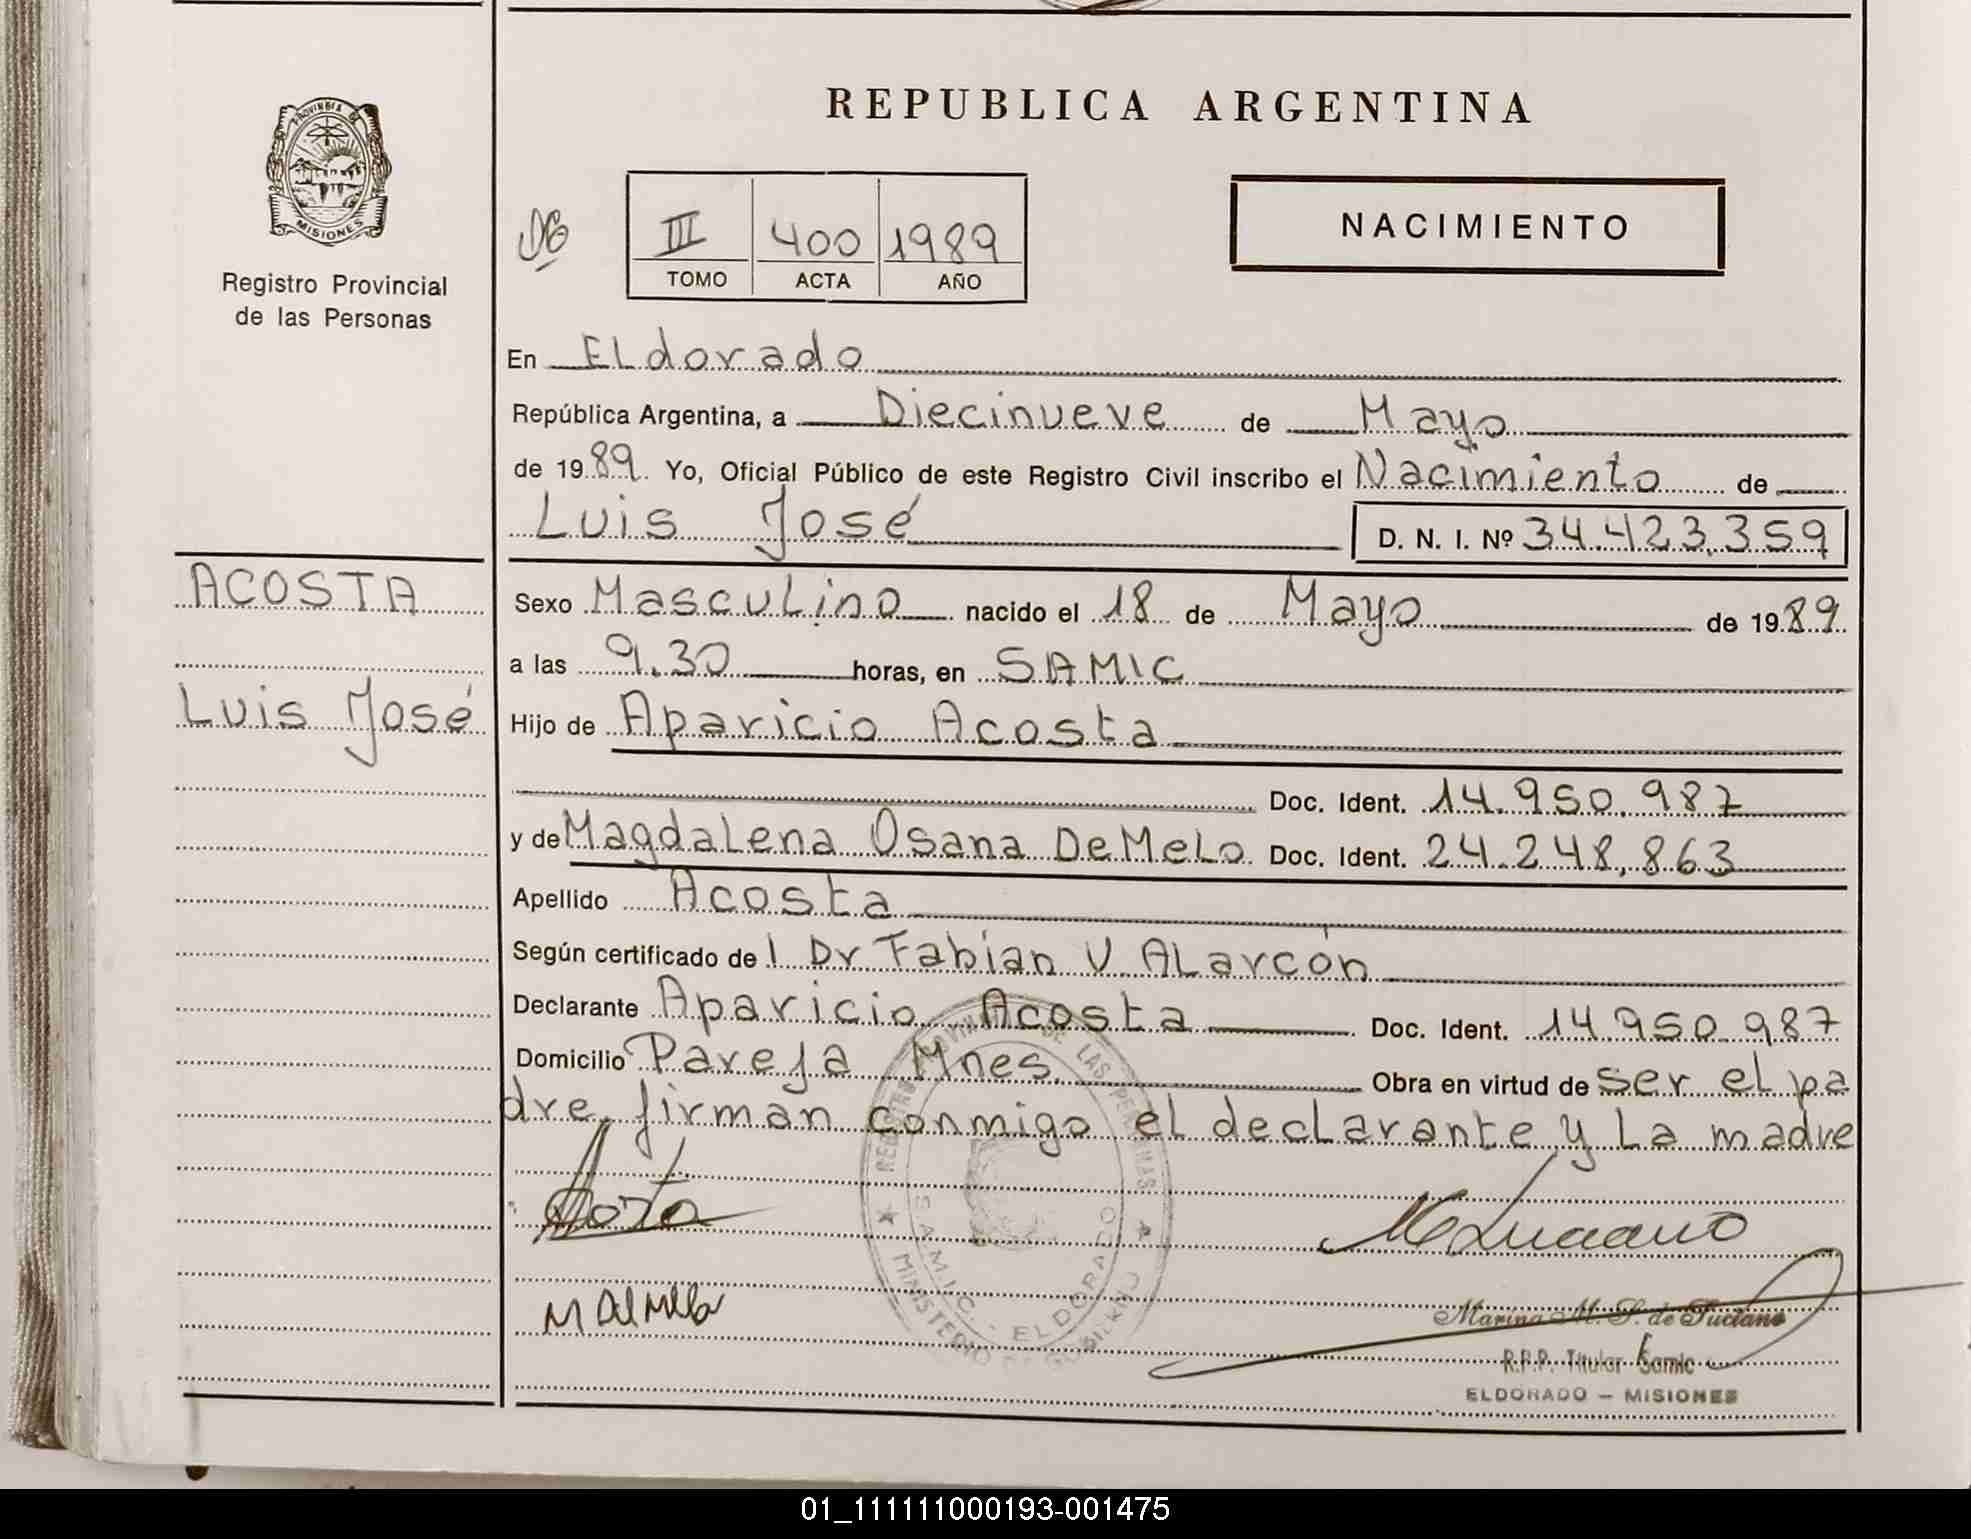 REPUBLICA ARGENTINA
PROVINCIA DE
MISIONES
Registro Provincial
de las Personas
III 400 1989
TOMO ACTA AÑO
NACIMIENTO
En Eldorado
República Argentina, a Diecinueve de Mayo
de 1989. Yo, Oficial Público de este Registro Civil inscribo el Nacimiento de
Luis José D. N. I. Nº 34.423.359
ACOSTA
Luis José
Sexo Masculino nacido el 18 de Mayo de 1989.
a las 9.30 horas, en SAMIC
Hijo de Aparicio Acosta
Doc. Ident. 14.950.987
y de Magdalena Osana De Melo Doc. Ident. 24.248.863
Apellido Acosta
Según certificado de l Dr Fabián V Alarcón
Declarante Aparicio Acosta Doc. Ident. 14.950.987
Domicilio Pareja Mnes. Obra en virtud de ser el pa
dre, firman conmigo el declarante y la madre
REGISTRO PROVINCIAL DE LAS PERSONAS
S.A.M.I.C. - ELDORADO
MINISTERIO DE GOBIERNO
Marina M. S. de Luciano
R.P.P. Titular Samic
ELDORADO - MISIONES
01_111111000193-001475